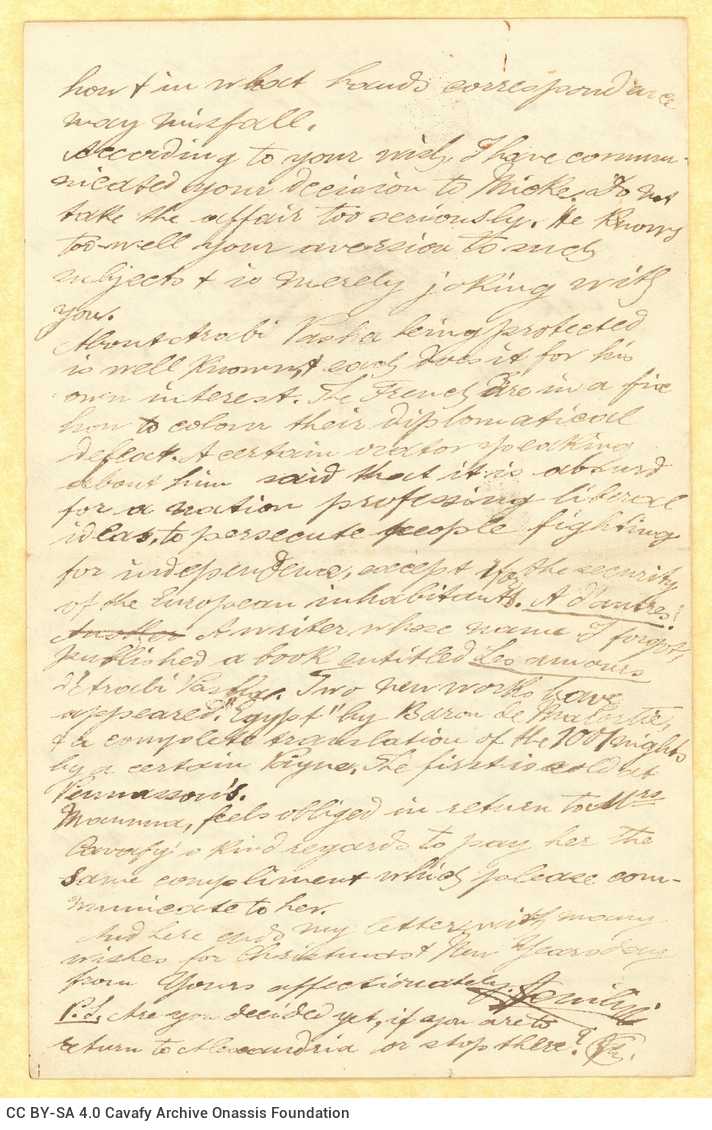 how & in what hands correspondence
may misfall.
According to your wish, I have commu-
nicated your decision to Mickè. Do not
take the affair too seriously. He knows
too well your aversion to such
subjects & is merely joking with
you.
About Arabi Pasha being protected
is well known, & each does it for his
own interest. The French are in a fix
how to colour their diplomatical
defeat. A certain orator speaking
about him said that it is absurd
for a nation professing liberal
ideas, to persecute people fighting
for independence, except for the security
of the European inhabitants. A d'autres!
Another A writer whose name I forgot,
published a book entitled Les amours
d'Arabi Pasha. Two new works have
appeared. "Egypt" by Baron de Malortie,
& a complete translation of the 1001 nights
by a certain Payne. The first is sold at
Pennasson's.
Mamma, feels obliged in return to Mrs
Cavafy's kind regards to pay her the
same compliment which please com-
municate to her.
And here ends my letter with many
wishes for Christmas & New Years day
from Yours affectionately
P.S. Are you decided yet, if you are to
return to Alexandria or stop there?
CC BY-SA 4.0 Cavafy Archive Onassis Foundation